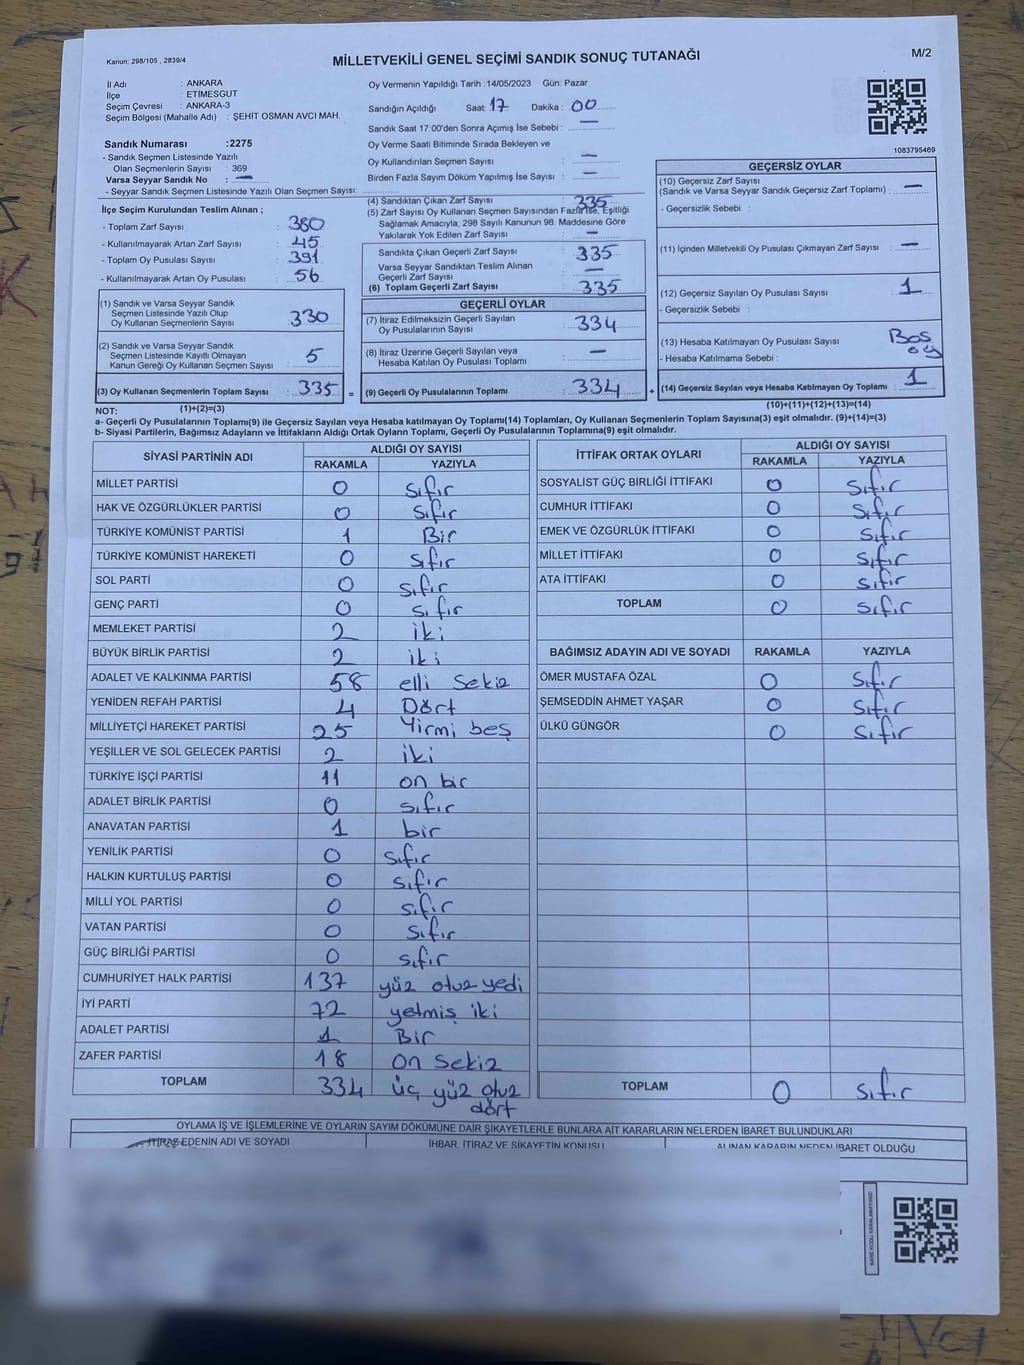 Kanun: 298/105 , 2839/4
MİLLETVEKİLİ GENEL SEÇİMİ SANDIK SONUÇ TUTANAĞI
M/2
İl Adı : ANKARA
İlçe : ETİMESGUT
Seçim Çevresi : ANKARA-3
Seçim Bölgesi (Mahalle Adı) : ŞEHİT OSMAN AVCI MAH.
Sandık Numarası :2275
- Sandık Seçmen Listesinde Yazılı
Olan Seçmenlerin Sayısı : 369
Varsa Seyyar Sandık No : —
- Seyyar Sandık Seçmen Listesinde Yazılı Olan Seçmen Sayısı:
Oy Vermenin Yapıldığı Tarih :14/05/2023 Gün: Pazar
Sandığın Açıldığı Saat: 17 Dakika : 00
Sandık Saat 17:00'den Sonra Açımış İse Sebebi : —
Oy Verme Saati Bitiminde Sırada Bekleyen ve
Oy Kullandırılan Seçmen Sayısı : —
Birden Fazla Sayım Döküm Yapılmış İse Sayısı : —
1083795469
İlçe Seçim Kurulundan Teslim Alınan ;
- Toplam Zarf Sayısı : 380
- Kullanılmayarak Artan Zarf Sayısı : 45
- Toplam Oy Pusulası Sayısı : 391
- Kullanılmayarak Artan Oy Pusulası : 56
(1) Sandık ve Varsa Seyyar Sandık
Seçmen Listesinde Yazılı Olup
Oy Kullanan Seçmenlerin Sayısı : 330
(2) Sandık ve Varsa Seyyar Sandık
Seçmen Listesinde Kayıtlı Olmayan
Kanun Gereği Oy Kullanan Seçmen Sayısı : 5
(3) Oy Kullanan Seçmenlerin Toplam Sayısı : 335 =
(4) Sandıktan Çıkan Zarf Sayısı : 335
(5) Zarf Sayısı Oy Kullanan Seçmen Sayısından Fazla İse, Eşitliği
Sağlamak Amacıyla; 298 Sayılı Kanunun 98. Maddesine Göre
Yakılarak Yok Edilen Zarf Sayısı : —
Sandıkta Çıkan Geçerli Zarf Sayısı : 335
Varsa Seyyar Sandıktan Teslim Alınan
Geçerli Zarf Sayısı : —
(6) Toplam Geçerli Zarf Sayısı : 335
GEÇERLİ OYLAR
(7) İtiraz Edilmeksizin Geçerli Sayılan
Oy Pusulalarının Sayısı : 334
(8) İtiraz Üzerine Geçerli Sayılan veya
Hesaba Katılan Oy Pusulası Toplamı : —
(9) Geçerli Oy Pusulalarının Toplamı : 334 +
GEÇERSİZ OYLAR
(10) Geçersiz Zarf Sayısı
(Sandık ve Varsa Seyyar Sandık Geçersiz Zarf Toplamı) : —
- Geçersizlik Sebebi :
(11) İçinden Milletvekili Oy Pusulası Çıkmayan Zarf Sayısı : —
(12) Geçersiz Sayılan Oy Pusulası Sayısı : 1
- Geçersizlik Sebebi :
(13) Hesaba Katılmayan Oy Pusulası Sayısı : Boş
- Hesaba Katılmama Sebebi : oy
(14) Geçersiz Sayılan veya Hesaba Katılmayan Oy Toplamı : 1
NOT: (1)+(2)=(3)
(10)+(11)+(12)+(13)=(14)
a- Geçerli Oy Pusulalarının Toplamı(9) ile Geçersiz Sayılan veya Hesaba katılmayan Oy Toplamı(14) Toplamları, Oy Kullanan Seçmenlerin Toplam Sayısına(3) eşit olmalıdır. (9)+(14)=(3)
b- Siyasi Partilerin, Bağımsız Adayların ve İttifakların Aldığı Ortak Oyların Toplamı, Geçerli Oy Pusulalarının Toplamına(9) eşit olmalıdır.
SİYASİ PARTİNİN ADI ALDIĞI OY SAYISI
RAKAMLA YAZIYLA
MİLLET PARTİSİ 0 sıfır
HAK VE ÖZGÜRLÜKLER PARTİSİ 0 sıfır
TÜRKİYE KOMÜNİST PARTİSİ 1 Bir
TÜRKİYE KOMÜNİST HAREKETİ 0 sıfır
SOL PARTİ 0 sıfır
GENÇ PARTİ 0 sıfır
MEMLEKET PARTİSİ 2 iki
BÜYÜK BİRLİK PARTİSİ 2 iki
ADALET VE KALKINMA PARTİSİ 58 elli Sekiz
YENİDEN REFAH PARTİSİ 4 Dört
MİLLİYETÇİ HAREKET PARTİSİ 25 Yirmi beş
YEŞİLLER VE SOL GELECEK PARTİSİ 2 iki
TÜRKİYE İŞÇİ PARTİSİ 11 on bir
ADALET BİRLİK PARTİSİ 0 sıfır
ANAVATAN PARTİSİ 1 bir
YENİLİK PARTİSİ 0 sıfır
HALKIN KURTULUŞ PARTİSİ 0 sıfır
MİLLİ YOL PARTİSİ 0 sıfır
VATAN PARTİSİ 0 sıfır
GÜÇ BİRLİĞİ PARTİSİ 0 sıfır
CUMHURİYET HALK PARTİSİ 137 yüz otuz yedi
İYİ PARTİ 72 yetmiş iki
ADALET PARTİSİ 1 Bir
ZAFER PARTİSİ 18 on sekiz
TOPLAM 334 üç yüz otuz
dört
İTTİFAK ORTAK OYLARI ALDIĞI OY SAYISI
RAKAMLA YAZIYLA
SOSYALİST GÜÇ BİRLİĞİ İTTİFAKI 0 sıfır
CUMHUR İTTİFAKI 0 sıfır
EMEK VE ÖZGÜRLÜK İTTİFAKI 0 sıfır
MİLLET İTTİFAKI 0 sıfır
ATA İTTİFAKI 0 sıfır
TOPLAM 0 sıfır
BAĞIMSIZ ADAYIN ADI VE SOYADI RAKAMLA YAZIYLA
ÖMER MUSTAFA ÖZAL 0 sıfır
ŞEMSEDDİN AHMET YAŞAR 0 sıfır
ÜLKÜ GÜNGÖR 0 sıfır
TOPLAM 0 sıfır
OYLAMA İŞ VE İŞLEMLERİNE VE OYLARIN SAYIM DÖKÜMÜNE DAİR ŞİKAYETLERLE BUNLARA AİT KARARLARIN NELERDEN İBARET BULUNDUKLARI
İTİRAZ EDENİN ADI VE SOYADI
İHBAR, İTİRAZ VE ŞİKAYETİN KONUSU
ALINAN KARARIN NEDEN İBARET OLDUĞU